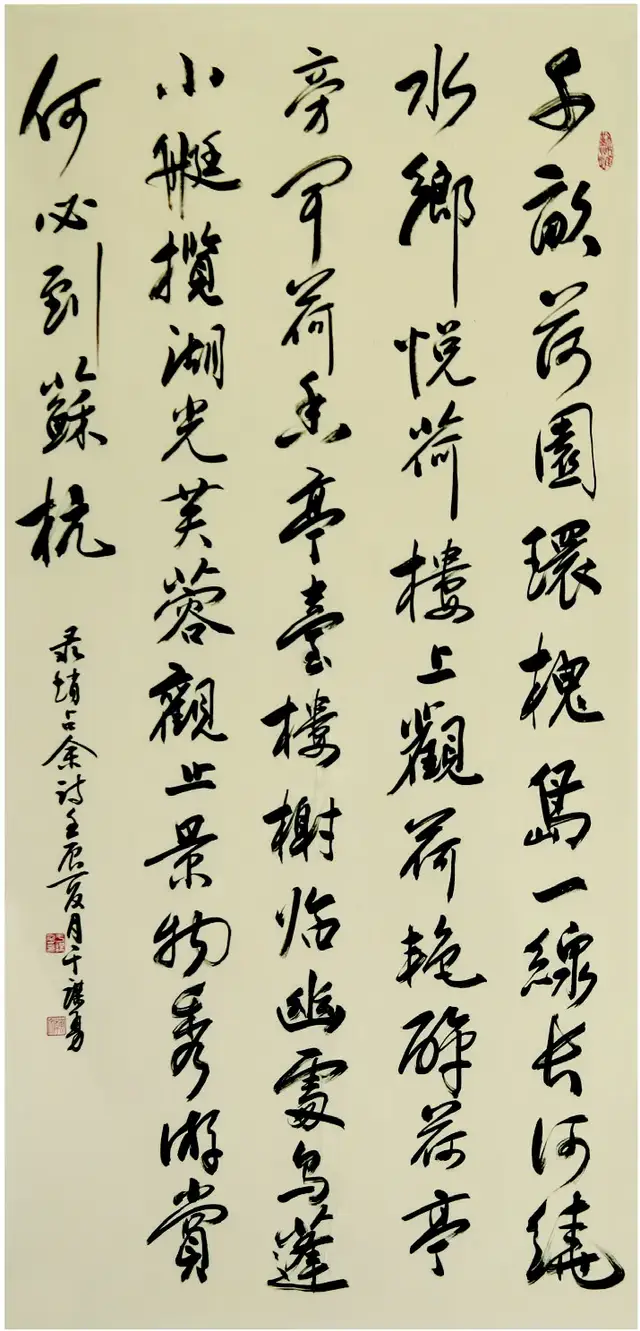 千畝荷園環槐島一線长河繞
水鄉悦荷樓上觀荷艳醉荷亭
旁聞荷香亭臺樓榭临幽處乌蓬
小艇攬湖光芙蓉觀止景物秀游賞
何必到蘇杭
录趙占余诗壬辰夏月于勇